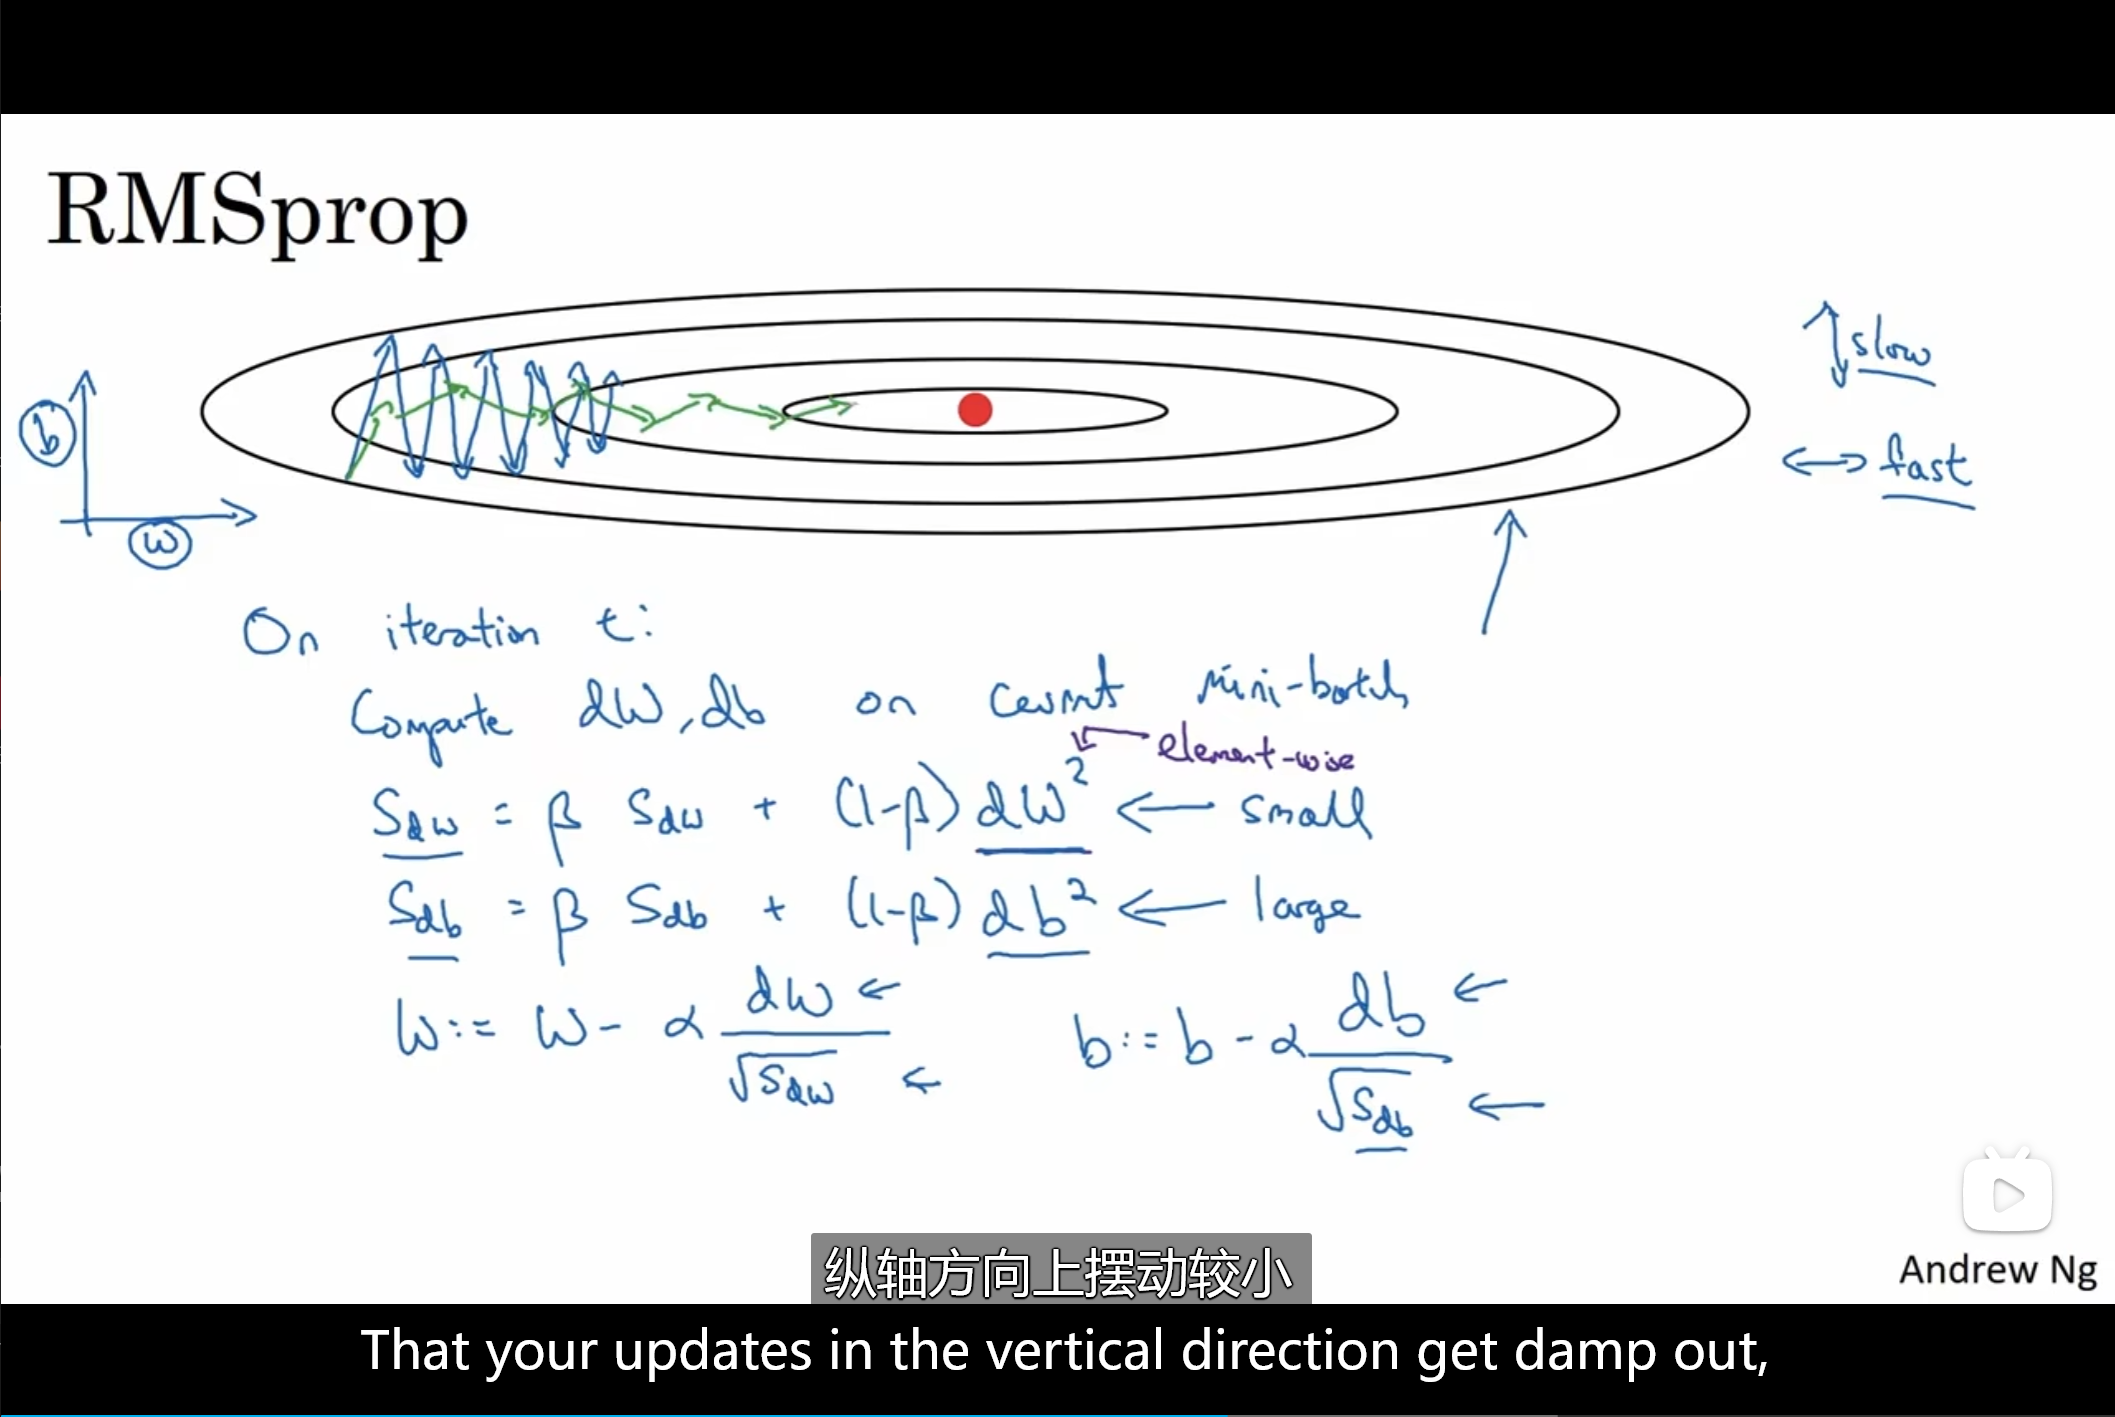 RMSprop
slow
b
fast
w
On iteration t:
Compute dW, db on current mini-batch
element-wise
Sdw = β Sdw + (1-β) dW² ← small
Sdb = β Sdb + (1-β) db² ← large
W := W - α dW/√Sdw ← b := b - α db/√Sdb ←
Andrew Ng
纵轴方向上摆动较小
That your updates in the vertical direction get damp out,